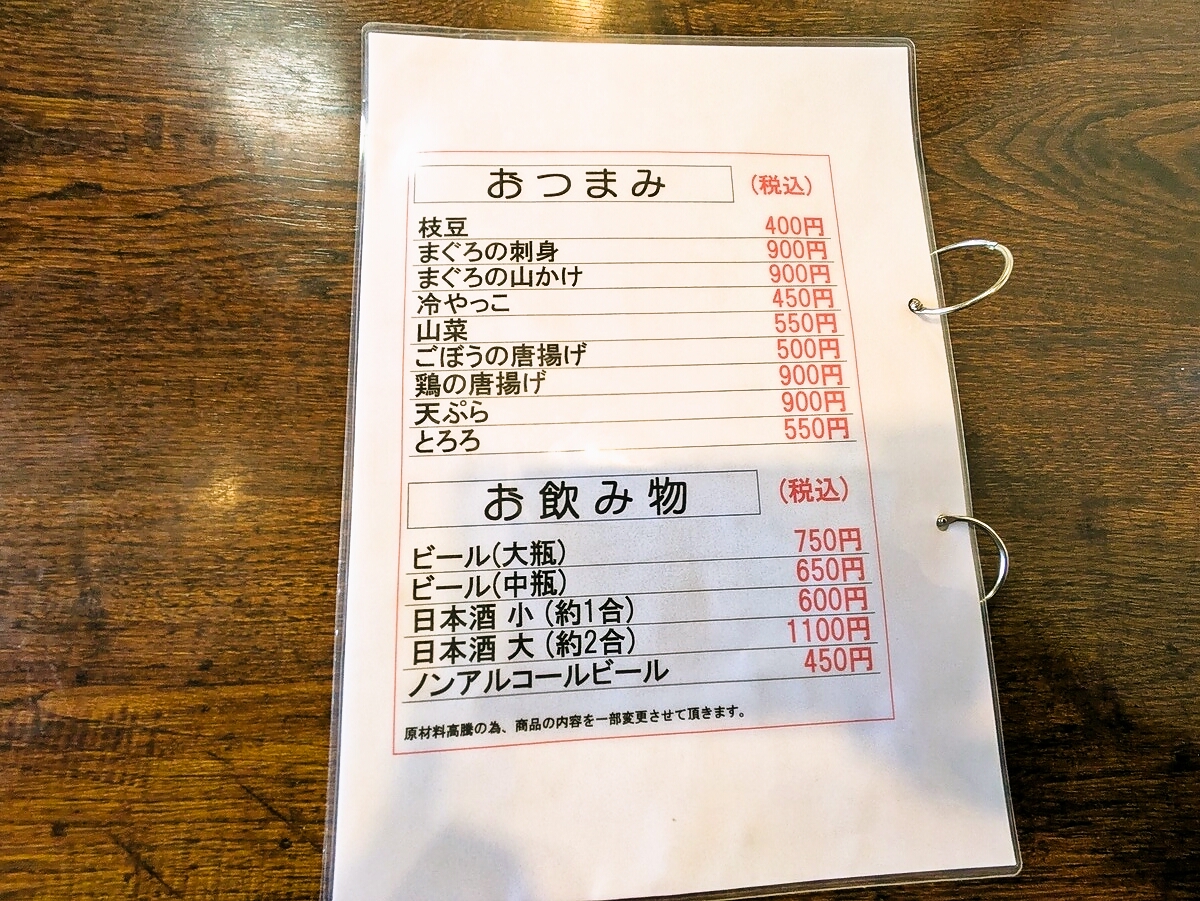 おつまみ (税込)
枝豆 400円
まぐろの刺身 900円
まぐろの山かけ 900円
冷やっこ 450円
山菜 550円
ごぼうの唐揚げ 500円
鶏の唐揚げ 900円
天ぷら 900円
とろろ 550円
お飲み物 (税込)
ビール(大瓶) 750円
ビール(中瓶) 650円
日本酒 小 (約1合) 600円
日本酒 大 (約2合) 1100円
ノンアルコールビール 450円
原材料高騰の為、商品の内容を一部変更させて頂きます。